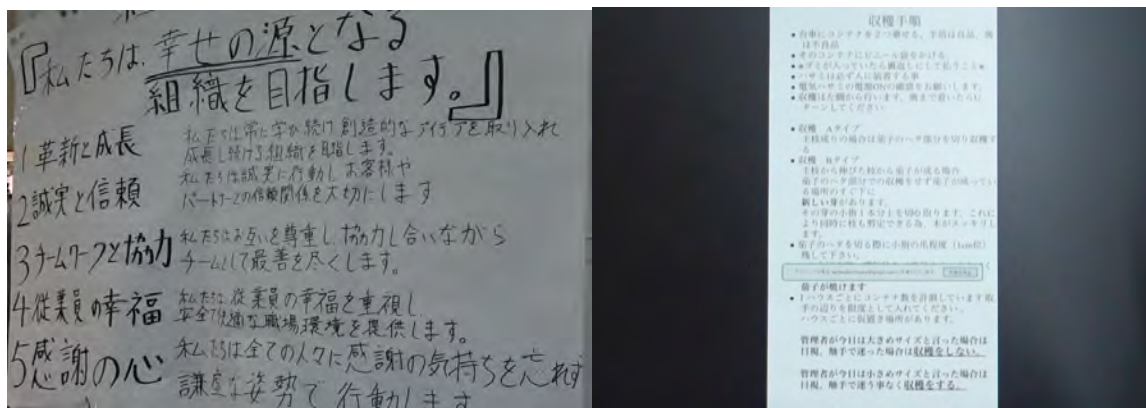 『私たちは、幸せの源となる
組織を目指します。』
1革新と成長
私たちは常に学び続け創造的なアイデアを取り入れ
成長し続ける組織を目指します。
2誠実と信頼
私たちは誠実に行動しお客様や
パートナーとの信頼関係を大切にします
3チームワークと協力
私たちはお互いを尊重し、協力し合いながら
チームとして最善を尽くします。
4従業員の幸福
私たちは、従業員の幸福を重視し、
安全で快適な職場環境を提供します。
5感謝の心
私たちは全ての人々に感謝の気持ちを忘れず
謙虚な姿勢で行動します
収穫手順
● 台車にコンテナを2つ乗せる。手前は良品、奥
は不良品
● そのコンテナにビニール袋をかける。
● ※ゴミが入っていたら裏返しにして払うこと※
● ハサミは必ず人に装着する事
● 電気ハサミの電源ONの確認をお願いします。
● 収穫は左側から行います。奥まで着いたらU
ターンしてください
● 収穫 Aタイプ
主枝成りの場合は茄子のヘタ部分を切り収穫す
る
● 収穫 Bタイプ
主枝から伸びた枝から茄子が成る場合
茄子のヘタ部分での収穫をせず茄子が成ってい
る場所のすぐ下に
新しい芽があります。
その芽の小指1本分上を切り取ります。これに
より同時に枝も剪定できる為、木がスッキリし
ます。
● 茄子のヘタを切る際に小指の爪程度(1cm位)
残して下さい。
茄子が焼けます
● 1ハウスごとにコンテナ数を計測しています取
手の辺りを限度として入れてください。
ハウスごとに仮置き場所があります。
管理者が今日は大きめサイズと言った場合は
目視、触手で迷った場合は収穫をしない。
管理者が今日は小さめサイズと言った場合は
目視、触手で迷う事なく収穫をする。